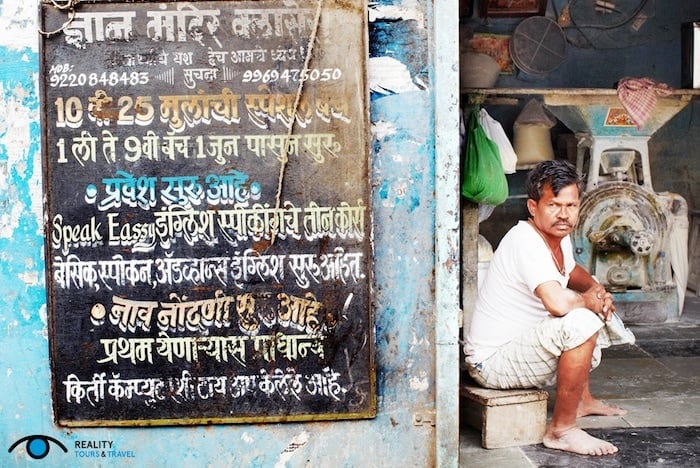 ज्ञान मंदिर क्लासेस
यश हेच आमचे ध्येय
MOB:
9220848483 सुचना 9969475050
10 वी 25 मुलांची स्पेशल बॅच
1 ली ते 9 वी बॅच 1 जुन पासुन सुरू
प्रवेश सुरू आहे
Speak Eassy इंग्लिश स्पीकींगचे तीन कोर्स
बेसिक, स्पोकन, अ‍ॅडव्हान्स इंग्लिश सुरू आहेत.
नाव नोंदणी सुरू आहे
प्रथम येणाऱ्यास प्राधान्य
किर्ती कॅम्प्युटर केलेले आहे.
REALITY
TOURS & TRAVEL